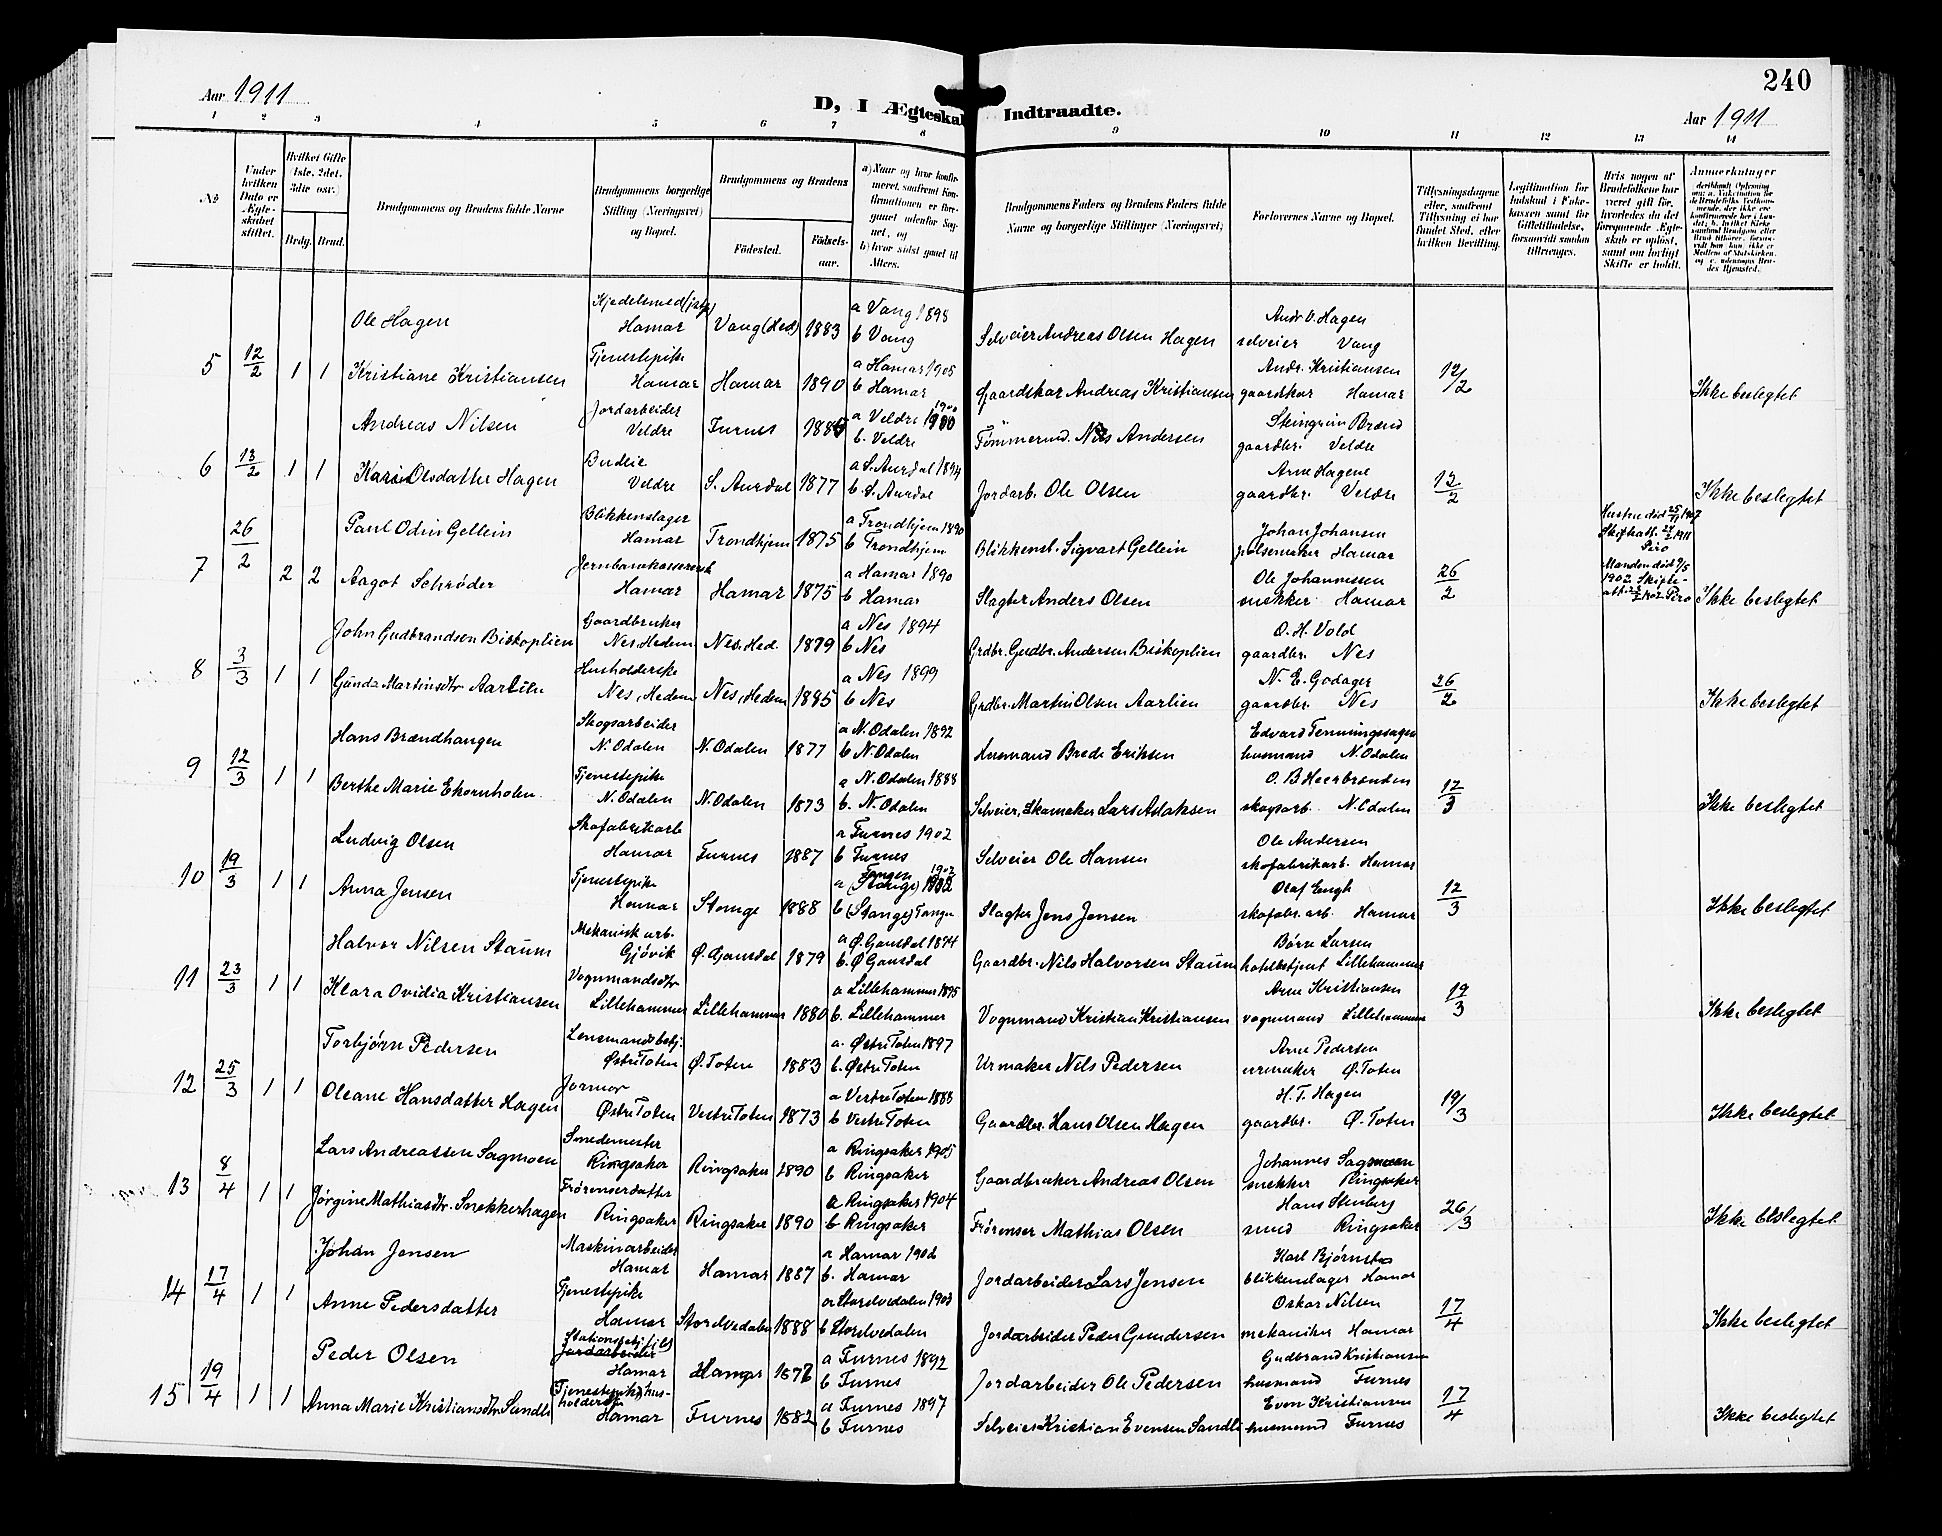 240
Aar 1911
D, I Ægteskab Indtraadte.
Aar 1911
1 2 3 4 5 6 7 8 9 10 11 12 13 14
No
Under hvilken Dato er Ægteskabet stiftet.
Hvilket Gifte (1ste, 2det, 3die osv.)
Brdg. Brud.
Brudgommens og Brudens fulde Navne
Brudgommens borgerlige Stilling (Næringsvei) og Bopæl.
Brudgommens og Brudens
Fødested. Fødselsaar.
a) Naar og hvor konfirmeret, saafremt Konfirmationen er foregaaet udenfor Sognet, og
b) hvor sidst gaaet til Alters.
Brudgommens Faders og Brudens Faders fulde Navne og borgerlige Stillinger (Næringsvei)
Forlovernes Navne og Bopæl.
Tillysningsdagene eller, saafremt Tillysning ei har fundet Sted, efter hvilken Bevilling.
Legitimation for Indskud i Enkekassen samt for Giftetilladelse, forsaavidt saadan tiltrænges.
Hvis nogen af Brudefolkene har været gift før, hvorledes da det foregaaende Ægteskab er opløst, samt om lovligt Skifte er holdt.
Anmerkninger
Ole Hagen Kjedelsmed Hamar Vang (Hed) 1883 a Vang 1898 b Vang Selveier Andreas Olsen Hagen Andr. O. Hagen selveier Vang
5 12/2 1 1 Kristiane Kristiansen Tjenestepike Hamar Hamar 1890 a Hamar 1905 b Hamar Gaardskar Andreas Kristiansen Andr. Kristiansen gaardskar Hamar 12/2 Ikke beslegtet
Andreas Nilsen Jordarbeider Veldre Furnes a Veldre 1900 b. Veldre Tømmermd. Nils Andersen Steingrim Brænd gaardbr. Veldre
6 13/2 1 1 Kari Olsdatter Hagen Budeie Veldre S. Aurdal 1877 a S. Aurdal 1894 b S. Aurdal Jordarb. Ole Olsen Arne Hagene gaardbr. Veldre 12/2 Ikke beslegtet
Paul Odin Gellein Blikkenslager Hamar Trondhjem 1875 a Trondhjem 1890 b Trondhjem Blikkensl. Sigvart Gellein Johan Johansen pølsemaker Hamar
7 26/2 2 2 Aagot Schrøder Hamar Hamar 1875 a Hamar 1890 b Hamar Slagter Anders Olsen Ole Johannessen snekker Hamar 26/2 Ikke beslegtet
John Gudbrandsen Biskoplien Gaardbruker Nes, Hedem Nes, Hed. 1879 a Nes 1894 b Nes Grdbr. Gudbr. Andersen Biskoplien O. H. Vold gaardbr. Nes
8 3/3 1 1 Gunda Martinsdtr Aarlien Husholderske Nes, Hedem Nes, Hedem 1885 a Nes 1899 b Nes Grdbr. Martin Olsen Aarlien N. E. Godager gaardbr. Nes 26/2 Ikke beslegtet
Hans Brændhangen Skogsarbeider N. Odalen N. Odalen 1877 a N. Odalen 1892 b N. Odalen Husmand Brede Eriksen Edvard husmand N. Odalen
9 12/3 1 1 Berthe Marie Ekornholen Tjenestepike N. Odalen N. Odalen 1873 a N. Odalen 1888 b. N. Odalen Selveier, Skomaker Lars Aslaksen O. B. skogsarb. N. Odalen 12/3 Ikke beslegtet
Ludvig Olsen Skofabrikarb Hamar Furnes 1887 a Furnes 1902 b Furnes Selveier Ole Hansen Ole Andersen skofabrikarb. Hamar
10 19/3 1 1 Anna Jensen Tjenestepike Hamar Stange 1888 a Tangen (Stange) 1902 b (Stange) Tangen Slagter Jens Jensen Olaf Engh skofabr. arb. Hamar 12/3 Ikke beslegtet
Halvor Nilsen Staum Mekanisk arb. Gjøvik Ø. Gausdal 1879 a Ø. Gausdal 1894 b. Ø Gausdal Gaardbr. Nils Halvorsen Staum Børre Larsen hotelbetjent Lillehammer
11 23/3 1 1 Klara Ovidia Kristiansen Vognmandsdtr Lillehammer Lillehammer 1880 a Lillehammer 1895 b. Lillehammer Vognmand Kristian Kristiansen Arne Kristiansen vognmand Lillehammer 19/3 Ikke beslegtet
Torbjørn Pedersen Lensmandsbetj. Østre Toten Ø. Toten 1883 a. Østre Toten 1897 b. Østre Toten Urmaker Nils Pedersen Arne Pedersen urmaker Ø. Toten
12 25/3 1 1 Oleane Hansdatter Hagen Jormor Østre Toten Vestre Toten 1873 a Vestre Toten 1888 b Vestre Toten Gaardbr. Hans Olsen Hagen H. T. Hagen gaardbr. Ø. Toten 19/3 Ikke beslegtet
Lars Andreassen Sagmoen Smedemester Ringsaker Ringsaker 1890 a Ringsaker 1905 b Ringsaker Gaardbruker Andreas Olsen Johannes Sagmoen snekker Ringsaker
13 8/4 1 1 Jørgine Mathiasdtr. Snekkerhagen Frørenserdatter Ringsaker Ringsaker 1890 a Ringsaker 1904 b Ringsaker Frørenser Mathias Olsen Hans Stenberg smed Ringsaker 26/3 Ikke beslegtet
Johan Jensen Maskinarbeider Hamar Hamar 1887 a Hamar 1902 b. Hamar Jordarbeider Lars Jensen Karl Bjørnstad blikkenslager Hamar
14 17/4 1 1 Anne Pedersdatter Tjenestepike Hamar Storelvedalen 1888 a Storelvedalen 1903 b Storelvedalen Jordarbeider Peder Gundersen Oskar Nilsen mekaniker Hamar 17/4 Ikke beslegtet
Peder Olsen Jordarbeider Hamar Hamar 1877 a Furnes 1892 b Furnes Jordarbeider Ole Pedersen Gudbrand Kristiansen husmand Furnes
15 19/4 1 1 Anna Marie Kristiansdtr. Sandli Tjenestepike, husholderske Hamar Furnes 1882 a Furnes 1897 b Furnes Selveier Kristian Evensen Sandli Even Kristiansen husmand Furnes 17/4 Ikke beslegtet